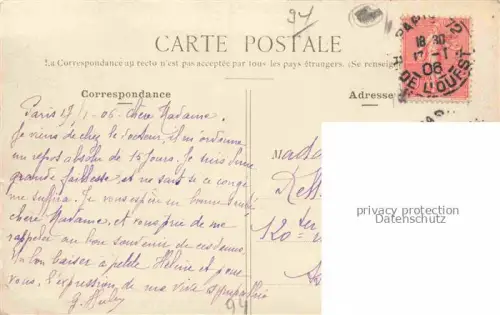 94
CARTE POSTALE
La Correspondance au recto n'est pas acceptée par tous les pays étrangers. (Se renseigner
Correspondance
Adresse
PARIS 72
18 30
17 - 1
06
R. DE L'OUEST
Paris 17/1-06 - Chère Madame.
Je viens de chez le docteur, il m'ordonne
un repos absolu de 15 jours. Je suis d'une
grande faiblesse et ne sait si ce congé
me suffira. Je vous espère en bonne santé
chère Madame, et vous prie de me
rappeler au bon souvenir de ces dames.
Un bon baiser à petite Hélène et pour
vous, l'expression de ma vive sympathie
G.
Mada
120 ter
privacy protection
Datenschutz
94